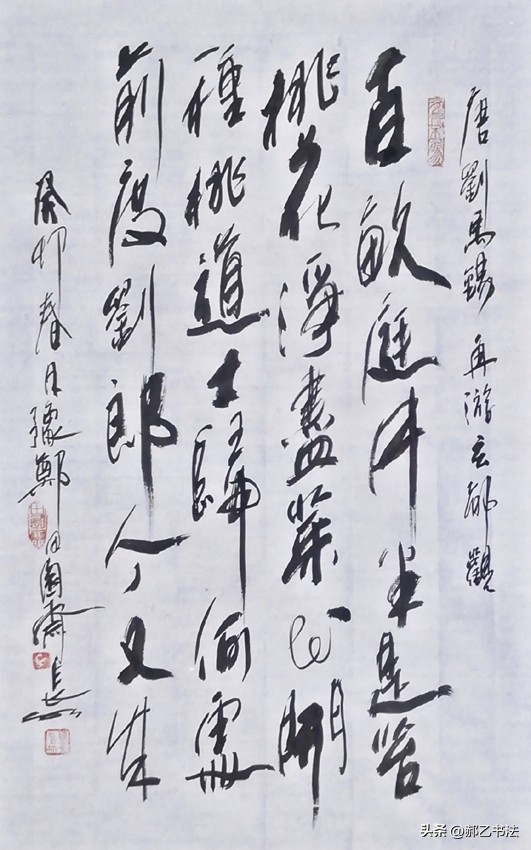 唐劉禹錫 再游玄都觀
百畝庭中半是苔
桃花淨盡菜花開
種桃道士歸何處
前度劉郎今又來
癸卯春月豫鄭
头条 @郝乙书法